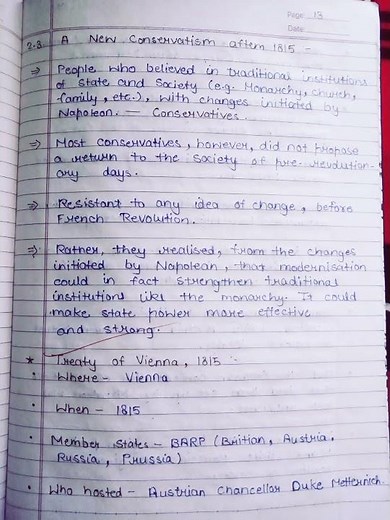 Page 13
Date
2.3. A New Conservatism after 1815 -
⇒ People who believed in traditional institutions
of state and society (e.g. Monarchy, church,
family, etc.), with changes initiated by
Napolean. — Conservatives.
⇒ Most conservatives, however, did not propose
a return to the society of pre-revolution-
ary days.
⇒ Resistant to any idea of change, before
French Revolution.
⇒ Rather, they realised, from the changes
initiated by Napolean, that modernisation
could in fact strengthen traditional
institutions like the monarchy. It could
make state power more effective
and strong.
* Treaty of Vienna, 1815 :-
• Where - Vienna
• When - 1815
• Member States - BARP (Britian, Austria,
Russia, Prussia)
• Who hosted - Austrian Chancellor Duke Metternich